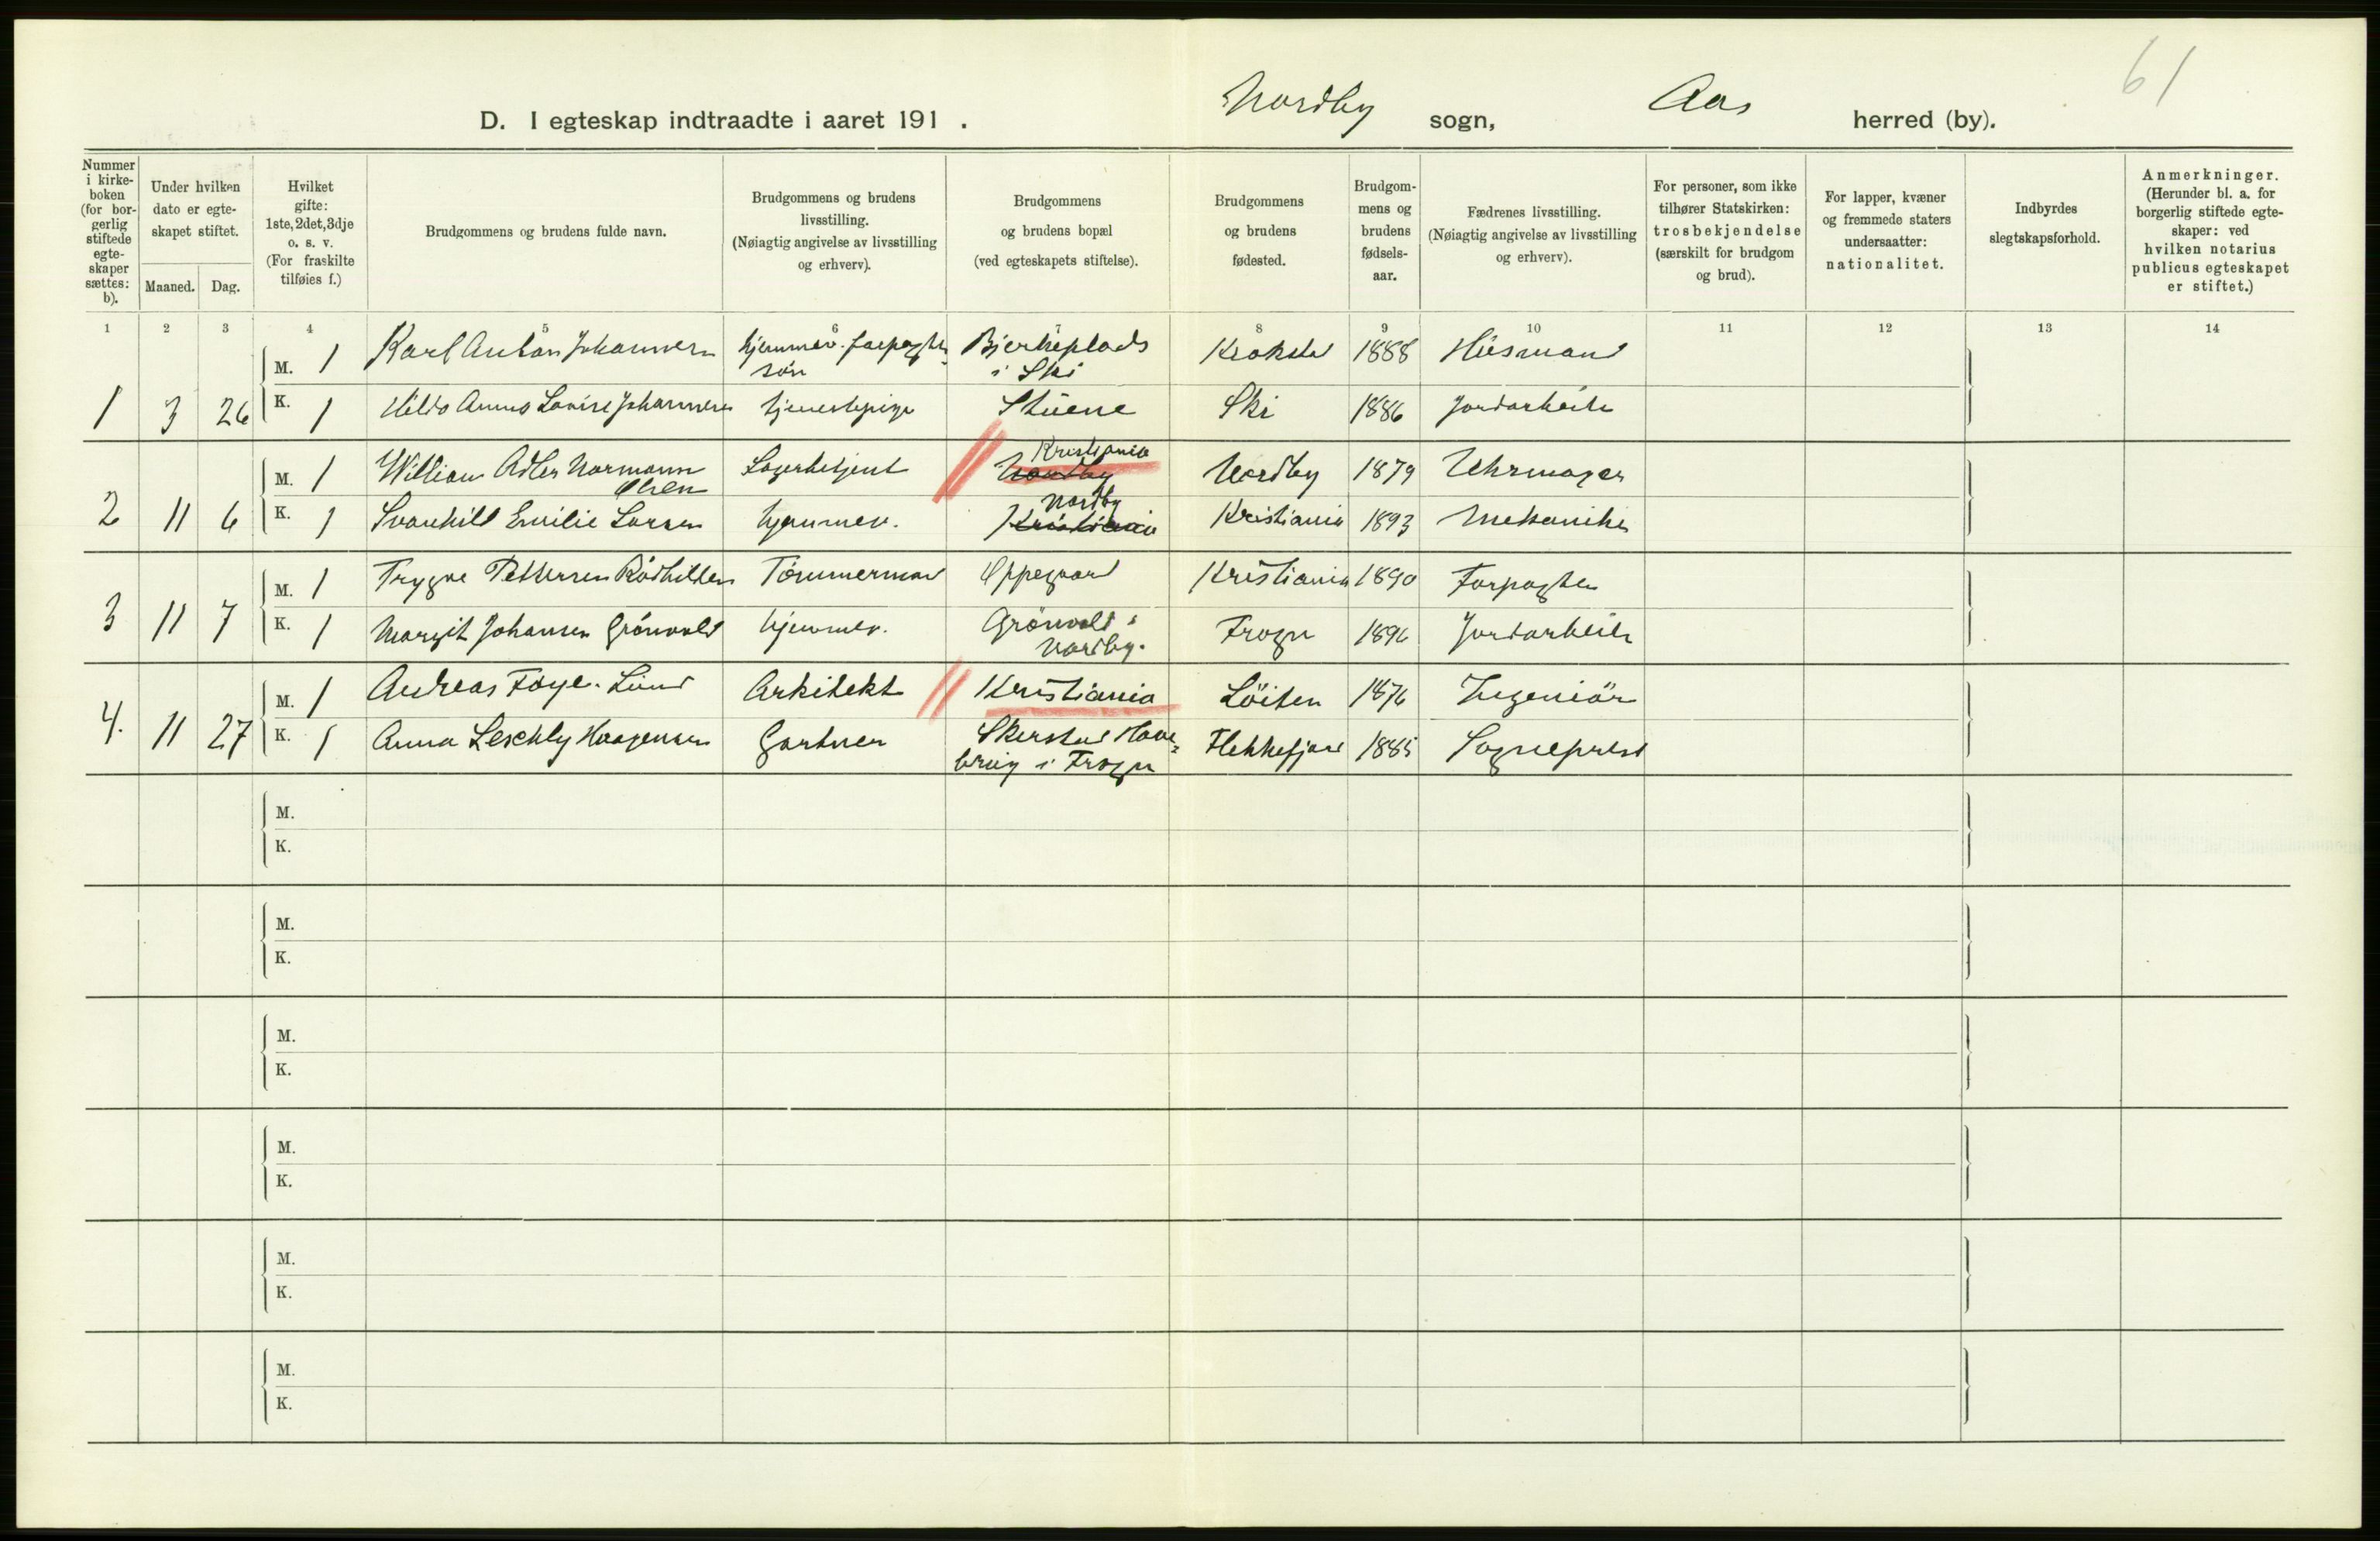 61
D. I egteskap indtraadte i aaret 191 . Nordby sogn, Aas herred (by).
Nummer i kirkeboken (for borgerlig stiftede egteskaper sættes: b).
Under hvilken dato er egteskapet stiftet.
Maaned. Dag.
Hvilket gifte: 1ste, 2det, 3dje o. s. v. (For fraskilte tilføies f.)
Brudgommens og brudens fulde navn.
Brudgommens og brudens livsstilling. (Nøiagtig angivelse av livsstilling og erhverv).
Brudgommens og brudens bopæl (ved egteskapets stiftelse).
Brudgommens og brudens fødested.
Brudgommens og brudens fødselsaar.
Fædrenes livsstilling. (Nøiagtig angivelse av livsstilling og erhverv).
For personer, som ikke tilhører Statskirken: trosbekjendelse (særskilt for brudgom og brud).
For lapper, kvæner og fremmede staters undersaatter: nationalitet.
Indbyrdes slegtskapsforhold.
Anmerkninger. (Herunder bl. a. for borgerlig stiftede egteskaper: ved hvilken notarius publicus egteskapet er stiftet.)
1 2 3 4 5 6 7 8 9 10 11 12 13 14
M. 1 Karl Anton Johannesen hjemmev. forpagter- Bjerkeplads Krokstad 1888 Husmand
søn i Ski
1 3 26 K. 1 Hilda Anna Lovise Johannesen tjenestepige Stuene Ski 1886 Jordarbeider
Kristiania
M. 1 William Adler Normann Lagerbetjent Nordby Nordby 1879 Uhrmager
Olsen
Nordby
2 11 6 K. 1 Svanhild Emilie Larsen hjemmev. Kristiania Kristiania 1893 Mekaniker
M. 1 Trygve Pettersen Rödhilden Tömmermand Oppegaard Kristiania 1890 Forpagter
3 11 7 K. 1 Margit Johansen Grönvold hjemmev. Grönvold i Frogn 1896 Jordarbeider
Nordby.
M. 1 Andreas Föye. Lund Arkitekt Kristiania Löiten 1876 Ingeniör
4. 11 27 K. 1 Anna Leschly Haagensen Gartner Skerstad Have- Flekkefjord 1885 Sogneprest
brug i Frogn
M.
K.
M.
K.
M.
K.
M.
K.
M.
K.
M.
K.